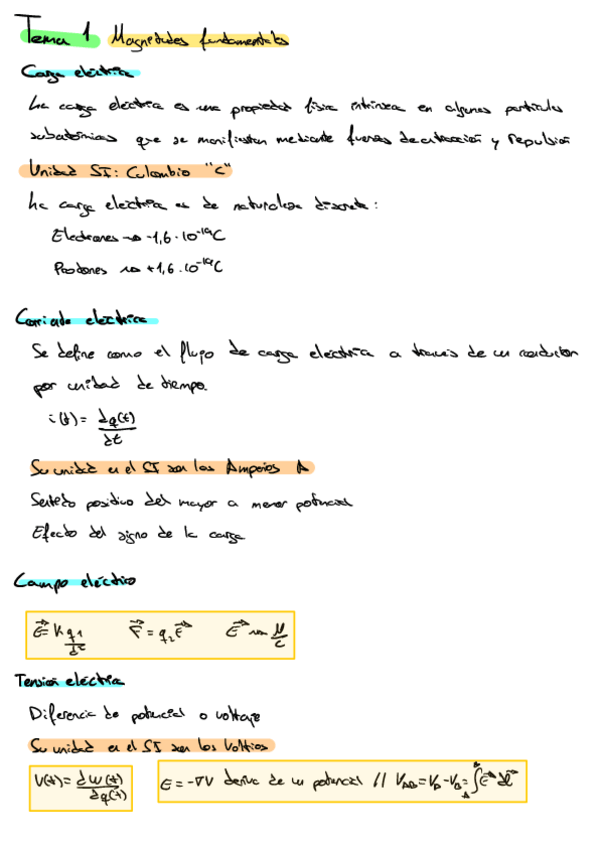 Tema 1 Magnitudes fundamentales
Carga eléctrica
La carga eléctrica es una propiedad física intrínseca en algunas partículas
subatómicas que se manifiestan mediante fuerzas de atracción y repulsión
Unidad SI: Culombio "C"
La carga eléctrica es de naturaleza discreta:
Electrones → -1,6·10⁻¹⁹C
Protones → +1,6·10⁻¹⁹C
Corriente eléctrica
Se define como el flujo de carga eléctrica a través de un conductor
por unidad de tiempo.
i(t) = dq(t)/dt
Su unidad en el SI son los Amperios A
Sentido positivo del mayor a menor potencial
Efecto del signo de la carga
Campo eléctrico
E⃗ = K q₁/d² F⃗ = q₂E⃗ E⃗ → N/C
Tensión eléctrica
Diferencia de potencial o voltaje
Su unidad en el SI son los Voltios
V(t) = dw(t)/dq(t) E = -∇V deriva de un potencial // V_AB = V_A - V_B = ∫_A^B E⃗ dl⃗